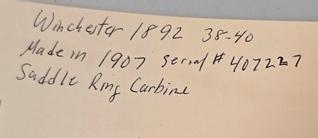 Winchester 1892 38-40
Made in 1907 Serial # 407227
Saddle Ring Carbine